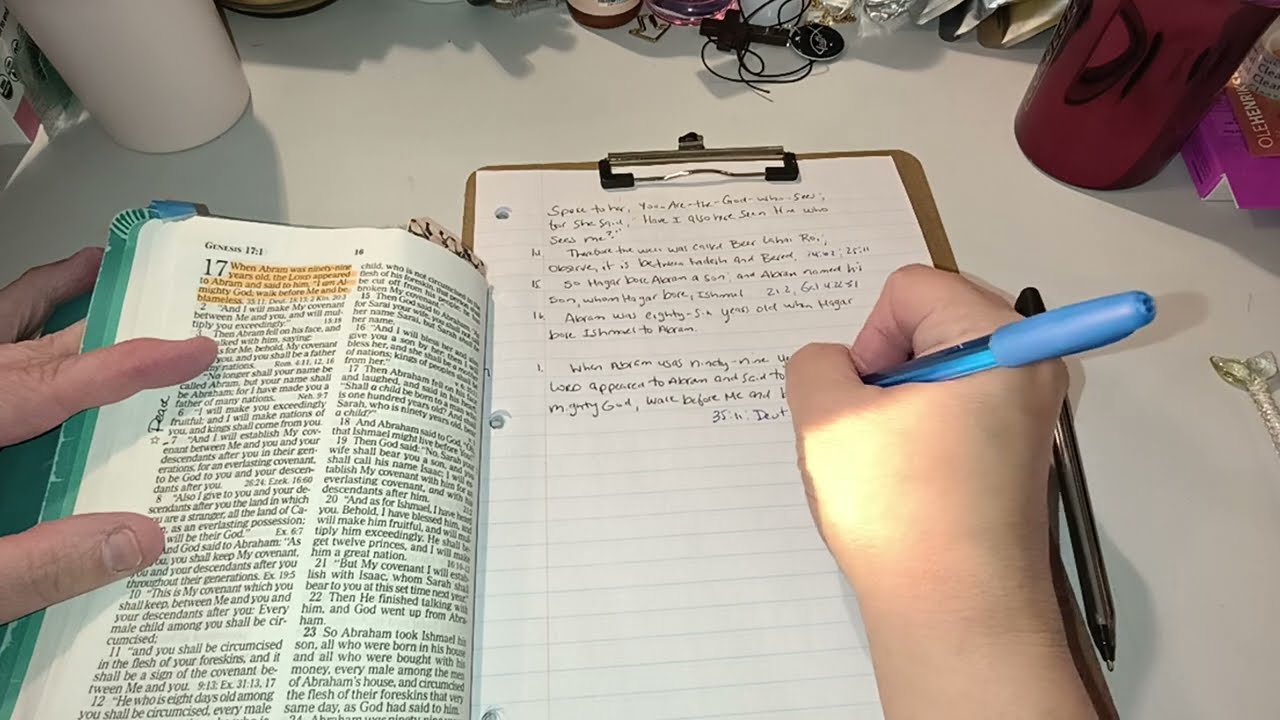 GENESIS 17:1
16
17 When Abram was ninety-nine
years old, the LORD appeared
to Abram and said to him, "I am Al-
mighty God; walk before Me and be
blameless. 35:11; Deut. 18:13; 2 Kin. 20:3
2 "And I will make My covenant
between Me and you, and will mul-
tiply you exceedingly."
3 Then Abram fell on his face, and
talked with him, saying:
as for Me, behold, My covenant
you, and you shall be a father
many nations. Rom. 4:11, 12, 16
No longer shall your name be
called Abram, but your name shall
be Abraham; for I have made you a
father of many nations. Neh. 9:7
6 "I will make you exceedingly
fruitful; and I will make nations of
you, and kings shall come from you.
7 "And I will establish My cov-
enant between Me and you and your
descendants after you in their gen-
erations, for an everlasting covenant,
to be God to you and your descen-
dants after you. 26:24; Ezek. 16:60
8 "Also I give to you and your de-
scendants after you the land in which
you are a stranger, all the land of Ca-
as an everlasting possession;
will be their God." Ex. 6:7
And God said to Abraham: "As
you, you shall keep My covenant,
you and your descendants after you
throughout their generations. Ex. 19:5
10 "This is My covenant which you
shall keep, between Me and you and
your descendants after you: Every
male child among you shall be cir-
cumcised;
11 "and you shall be circumcised
in the flesh of your foreskins, and it
shall be a sign of the covenant be-
tween Me and you. 9:13; Ex. 31:13, 17
12 "He who is eight days old among
you shall be circumcised, every male
Read
child, who is not circumcised
flesh of his foreskin, that person
be cut off from his people;
My covenant."
15 Then God said to Abraham,
for Sarai your wife, you shall not
her name Sarai, but Sarah
her name.
16 "And I will bless her and
give you a son by her; then I will
bless her, and she shall be
of nations; kings of peoples shall
from her."
17 Then Abraham fell on his face
and laughed, and said in his
"Shall a child be born to a man
is one hundred years old? And shall
Sarah, who is ninety years old, bear
a child?"
18 And Abraham said to God,
that Ishmael might live before You!"
19 Then God said: "No, Sarah your
wife shall bear you a son, and you
shall call his name Isaac; I will es-
tablish My covenant with him for an
everlasting covenant, and with his
descendants after him.
20 "And as for Ishmael, I have heard
you. Behold, I have blessed him, and
will make him fruitful, and will mul-
tiply him exceedingly. He shall be-
get twelve princes, and I will make
him a great nation.
21 "But My covenant I will estab-
lish with Isaac, whom Sarah shall
bear to you at this set time next year."
22 Then He finished talking with
him, and God went up from Abra-
ham.
23 So Abraham took Ishmael his
son, all who were born in his house
and all who were bought with his
money, every male among the men
of Abraham's house, and circumcised
the flesh of their foreskins that very
same day, as God had said to him.
24 Abraham was ninety-nine
Spoke to her, You-Are-the-God-who-Sees;
for She Said, "Have I also here seen Him who
Sees me?"
14 Therefore the well was called Beer Lahai Roi;
Observe, it is between Kadesh and Bered. 25:11
15. So Hagar bore Abram a son; and Abram named his
Son, whom Hagar bore, Ishmael
16 Abram was eighty-six years old when Hagar
bore Ishmael to Abram.
1. When Abram was ninety-nine
LORD appeared to Abram and said to
mighty God; walk before Me and
35:11; Deut
OLEHENRIKS
Clea
Clea